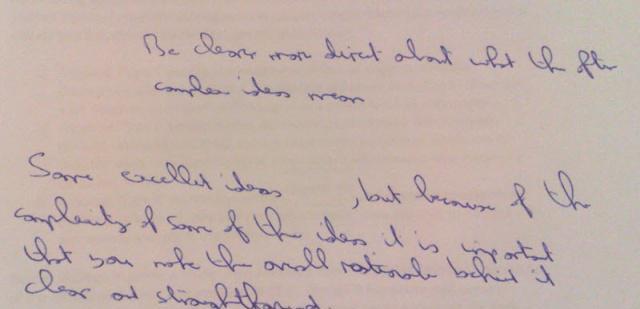 Be clearer more direct about what the often
complex ideas mean
Some excellent ideas , but because of the
complexity of some of the ideas it is important
that you make the overall rationale behind it
clear and straightforward.